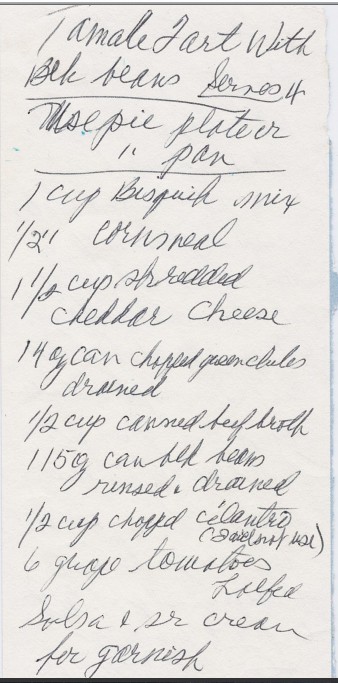 Tamale Tart With
Blk beans Serves 4
Use pie plate or
" pan
1 cup Bisquick mix
1/2 " cornmeal
1 1/2 cup shredded
cheddar cheese
1 4 oz can chopped green chiles
drained
1/2 cup canned beef broth
1 15 oz can blk beans
rinsed & drained
1/2 cup chopped cilantro
(I did not use)
6 grape tomatoes
halfed
Salsa & sr cream
for garnish